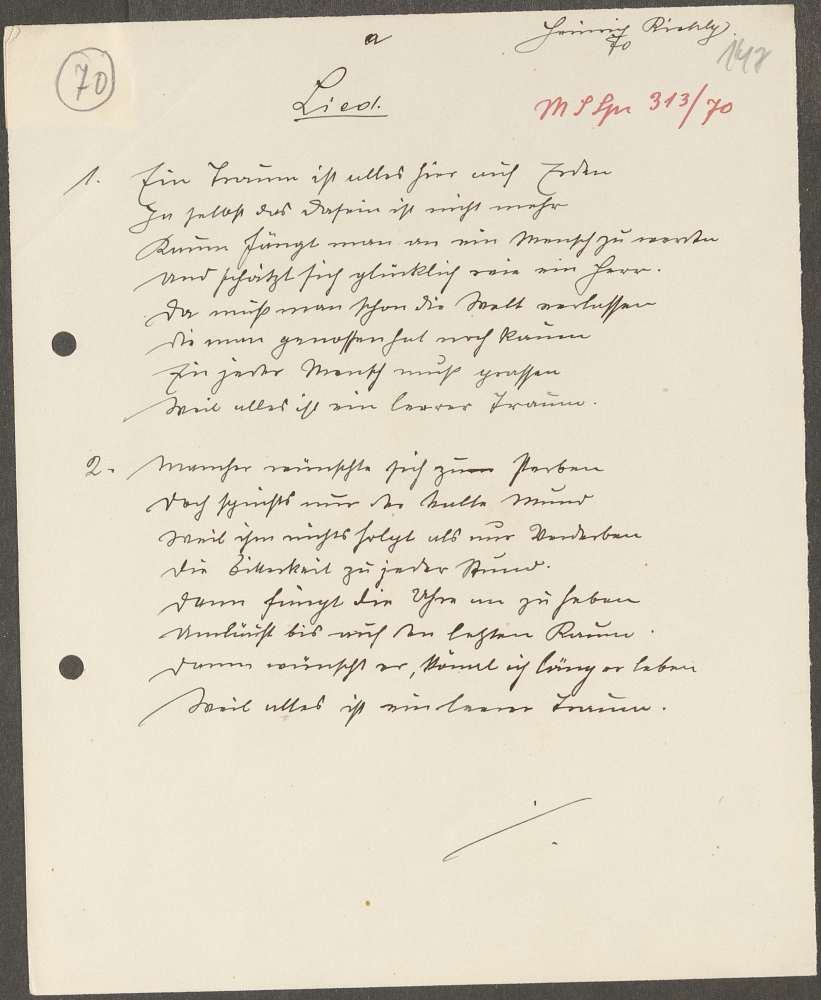 a
Heinrich
70
70
142
Lied.
313/70
1. Ein Traum ist alles hier auf Erden
Ja selbst das Dasein ist nicht mehr
Kaum fängt man an ein Mensch zu werden
Und schätzt sich glücklich wie ein Herr.
Da muß man schon die Welt verlassen
die man genossen hat noch kaum
Ein jeder Mensch muß
Weil alles ist ein leerer Traum.
2. Mancher wünschte sich zum sterben
Doch sprichts nur der kalte Mund
Weil ihm nichts folgt als nur Verderben
Die Bitterkeit zu jeder Stund.
Dann fängt die Uhr an zu heben
Umläuft bis auf den letzten Raum.
Dann wünscht er, könnt ich länger leben
Weil alles ist ein leerer Traum.